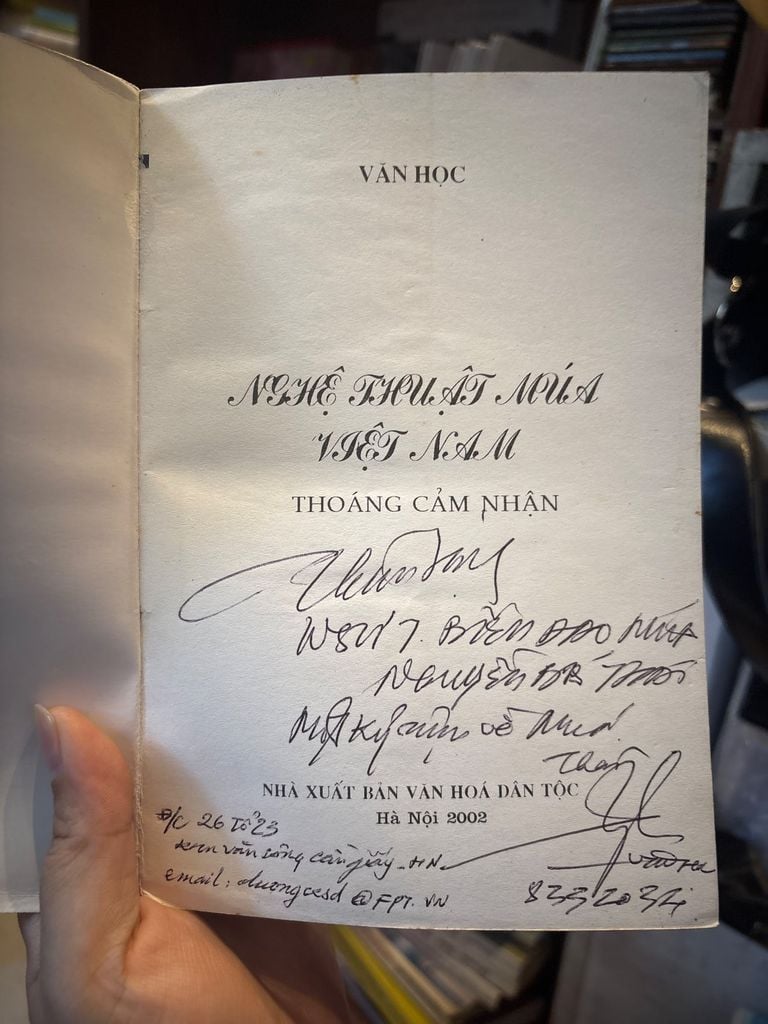 VĂN HỌC
NGHỆ THUẬT MÚA
VIỆT NAM
THOÁNG CẢM NHẬN
Thân tặng
BIÊN ĐẠO MÚA
NGUYỄN BÁ THÁI
Một kỷ niệm về Múa
Thân
NHÀ XUẤT BẢN VĂN HOÁ DÂN TỘC
Hà Nội 2002
Đ/C 26 Tổ 23
văn công cầu giấy - HN
email: @FPT.VN
8332034